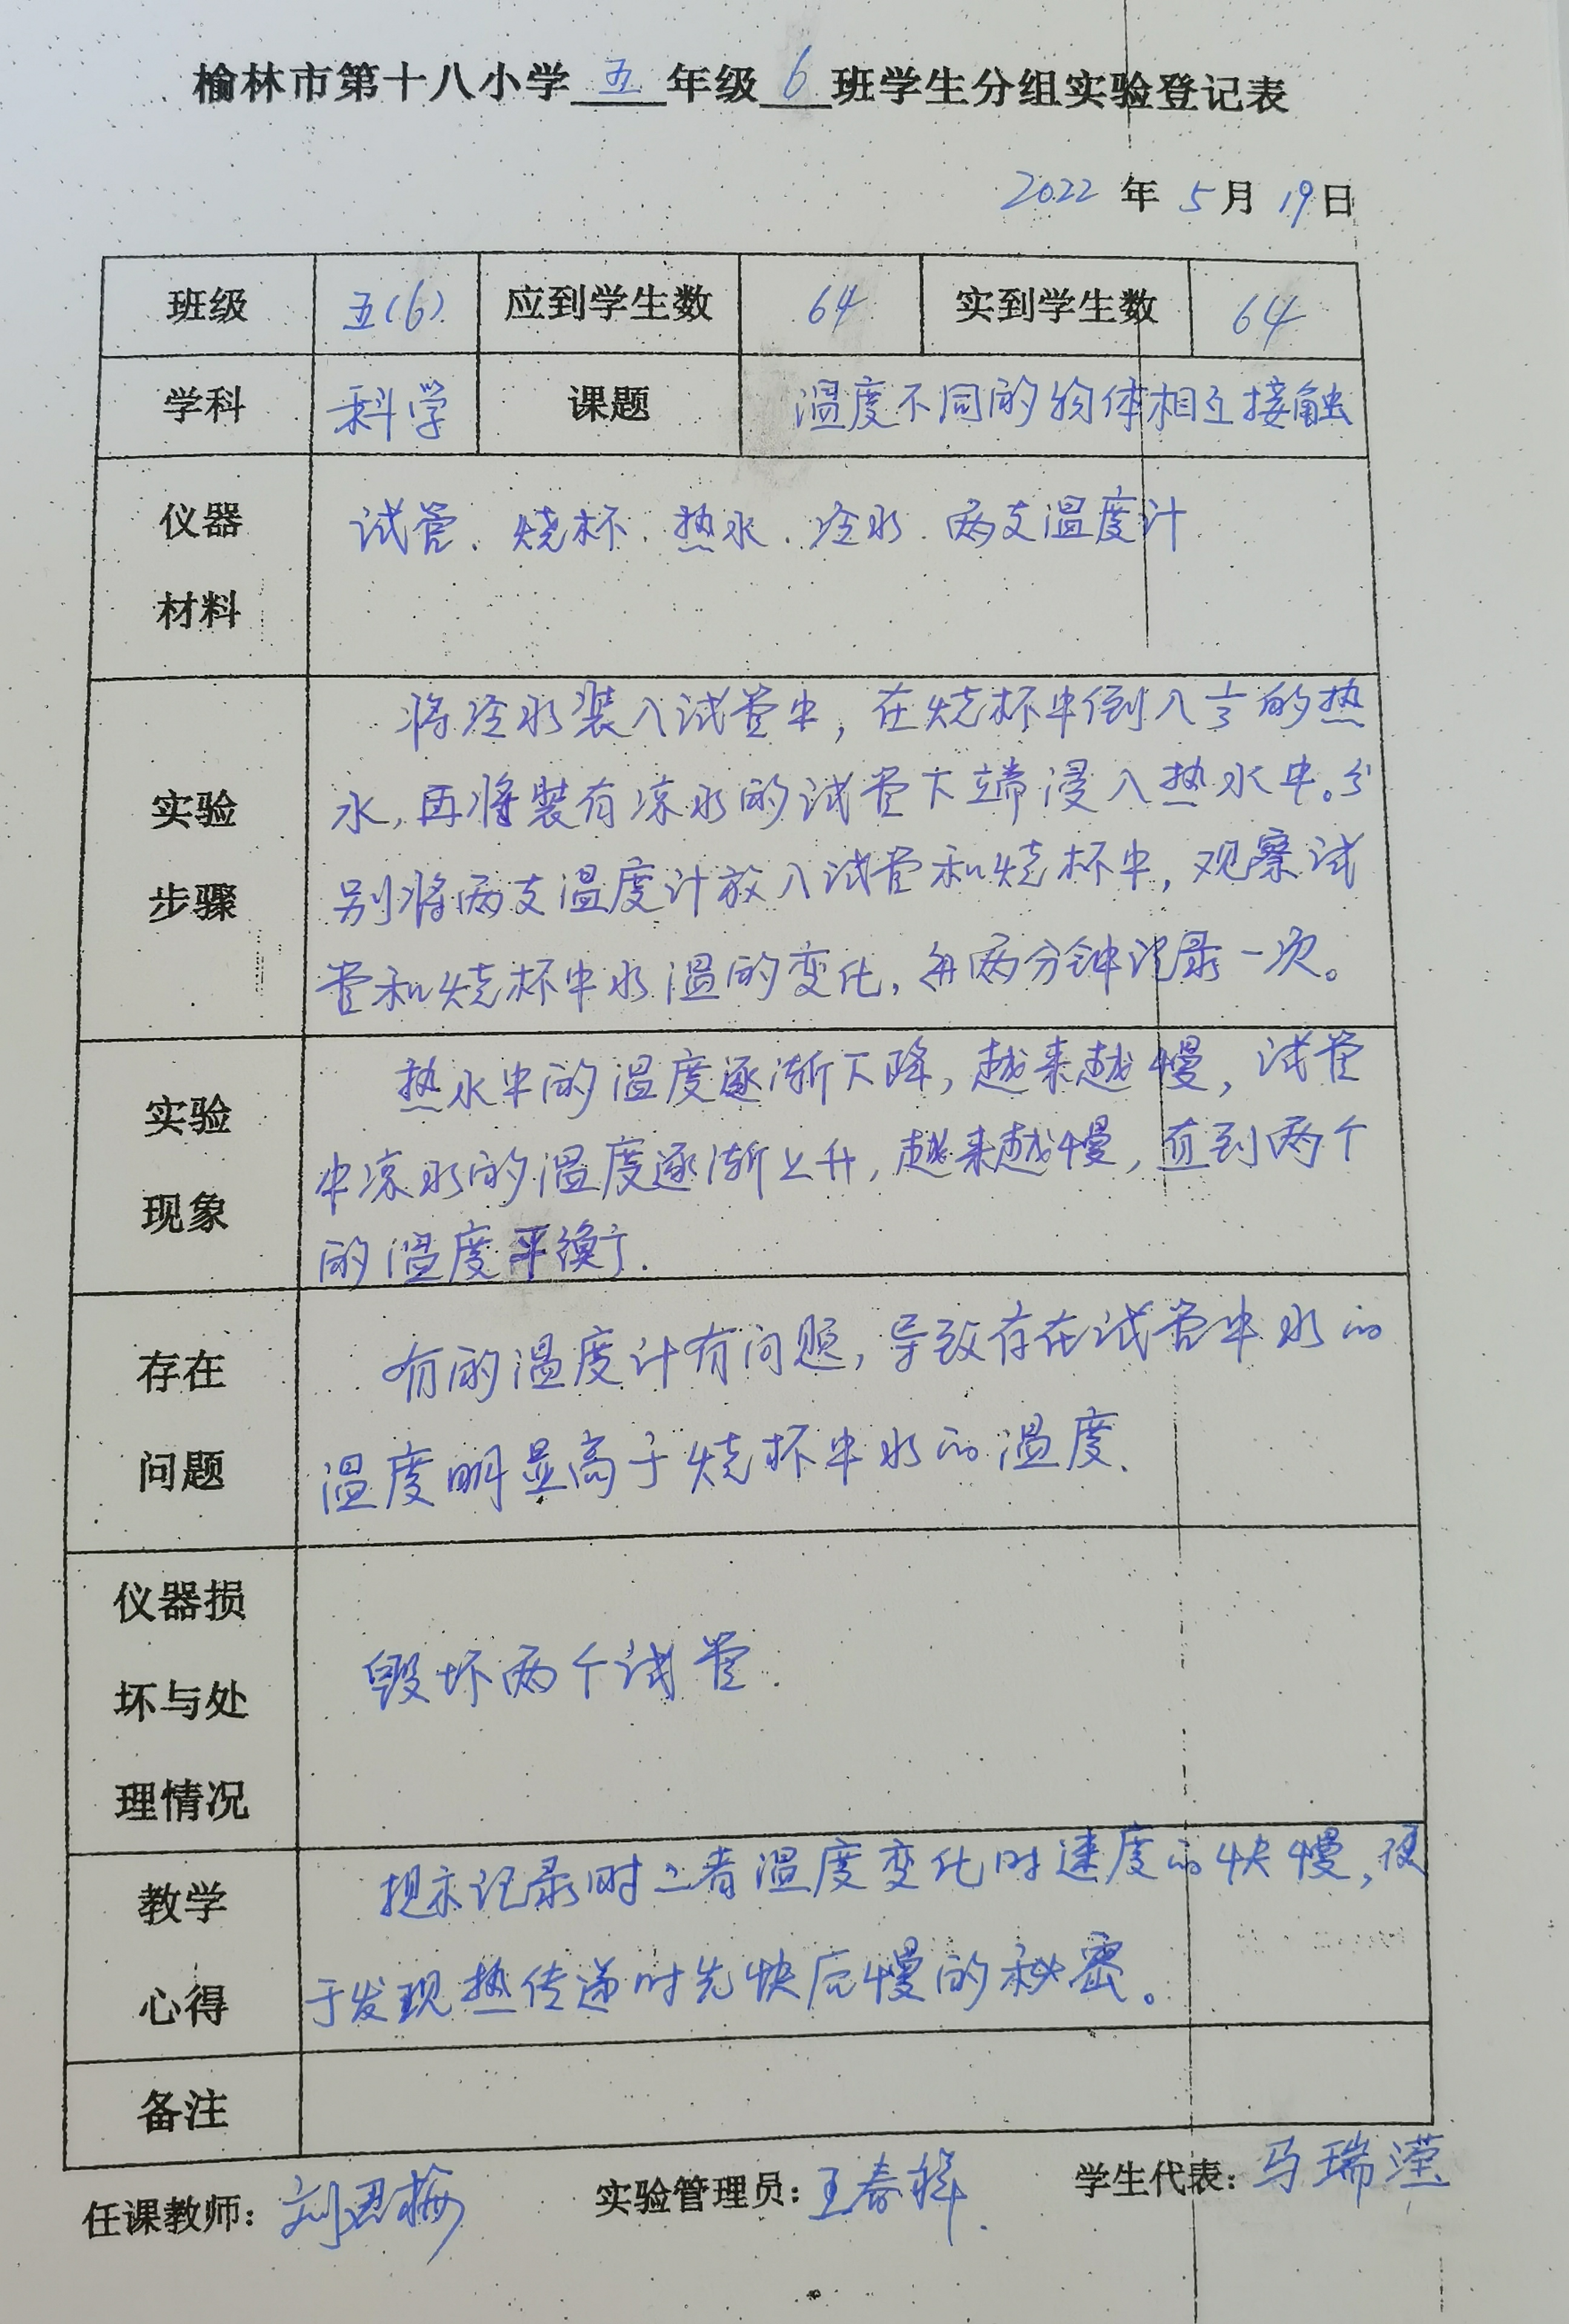 榆林市第十八小学 五 年级 6 班学生分组实验登记表
2022 年 5 月 19 日
班级 五(6) 应到学生数 64 实到学生数 64
学科 科学 课题 温度不同的物体相互接触
仪器
材料
试管、烧杯、热水、冷水、两支温度计
实验
步骤
将冷水装入试管中，在烧杯中倒入⅓的热
水，再将装有凉水的试管下端浸入热水中。分
别将两支温度计放入试管和烧杯中，观察试
管和烧杯中水温的变化，每两分钟记录一次。
实验
现象
热水中的温度逐渐下降，越来越慢，试管
中凉水的温度逐渐上升，越来越慢，直到两个
的温度平衡了.
存在
问题
有的温度计有问题，导致存在试管中水的
温度明显高于烧杯中水的温度.
仪器损
坏与处
理情况
毁坏两个试管.
教学
心得
记录时二者温度变化时速度的快慢，便
于发现热传递时先快后慢的秘密。
备注
任课教师： 刘 梅 实验管理员：王春 学生代表：马瑞滢